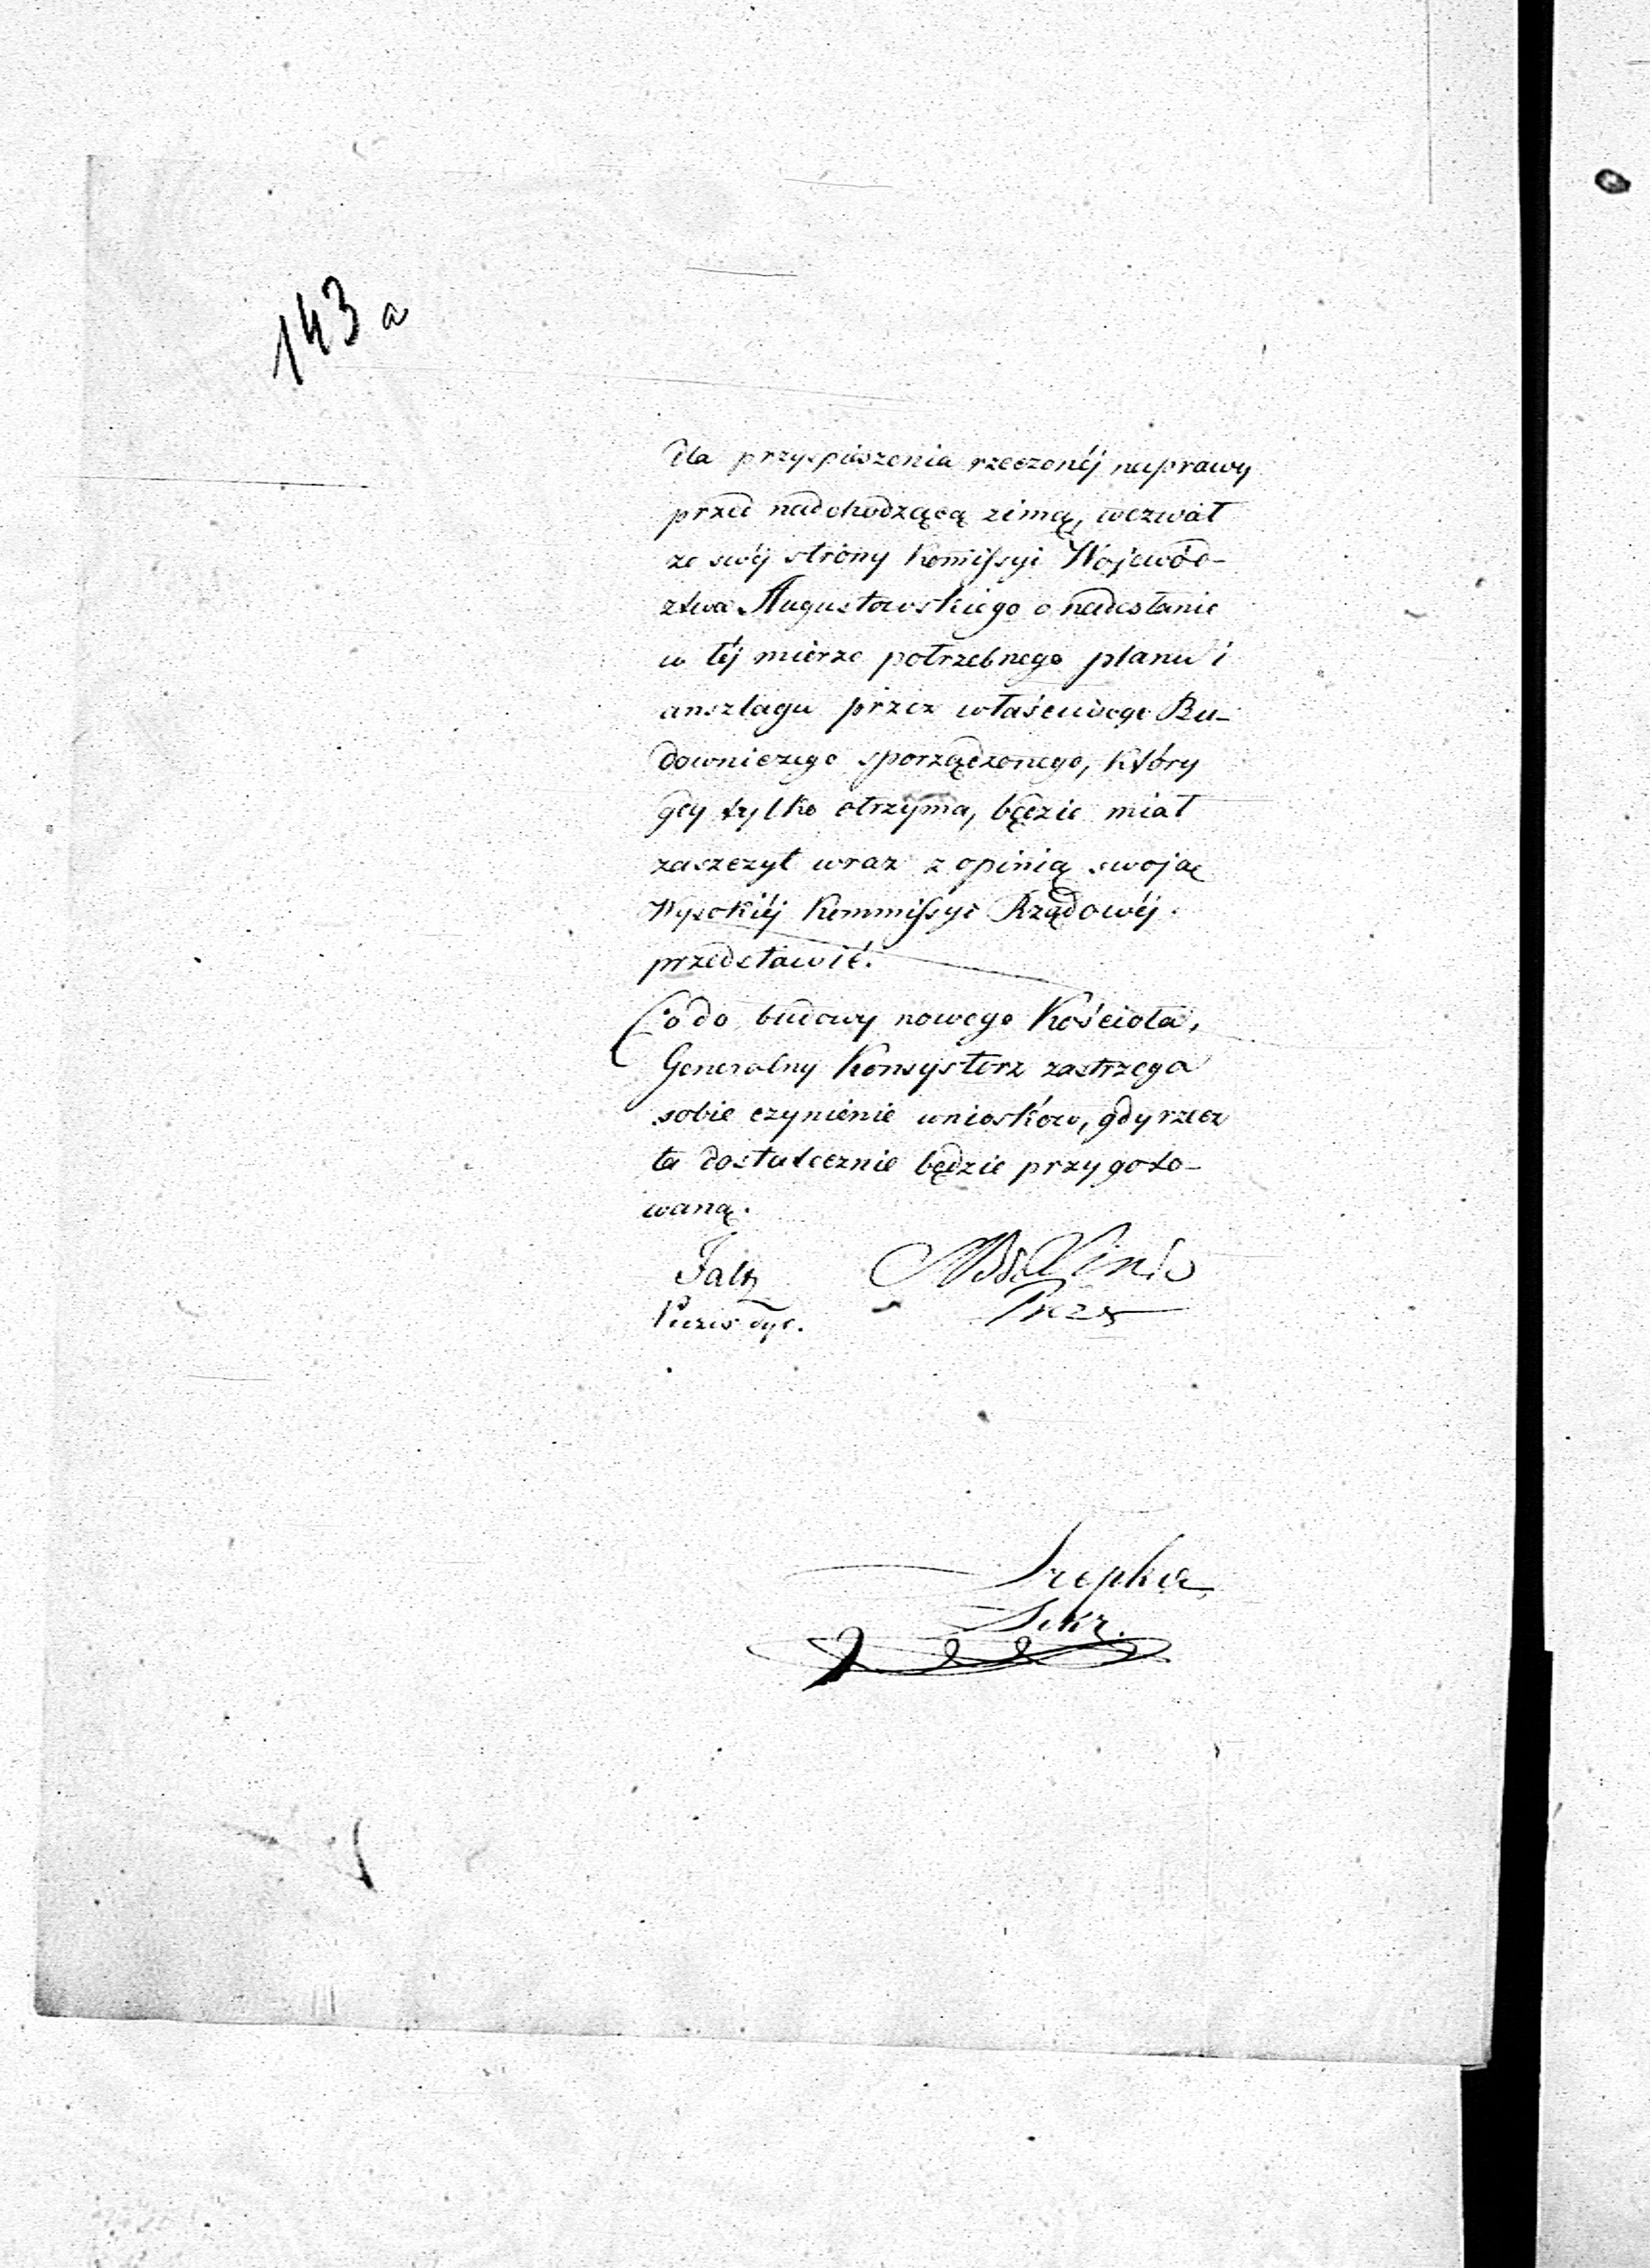 143 a
dla przyspieszenia rzeczonéj naprawy
przed nadchodzącą zimą, wezwał
ze swéj stróny Komissyi Wojewódz-
ztwa Augustowskiego o nadesłanie
w téj mierze potrzebnego planu i
anszlagu przez właściwego Bu-
downiczego sporządzonego, który
gdy tylko otrzyma, będzie miał
zaszczyt wraz z opinią swoją
Wysokiéj Kommissyi Rządowéj
przedstawić.
Co do budowy nowego Kościoła,
Generalny Konsystorz zastrzega
sobie czynienie wniosków, gdy rzecz
ta dostatecznie będzie przygoto-
waną.
Prezes
Sekr.